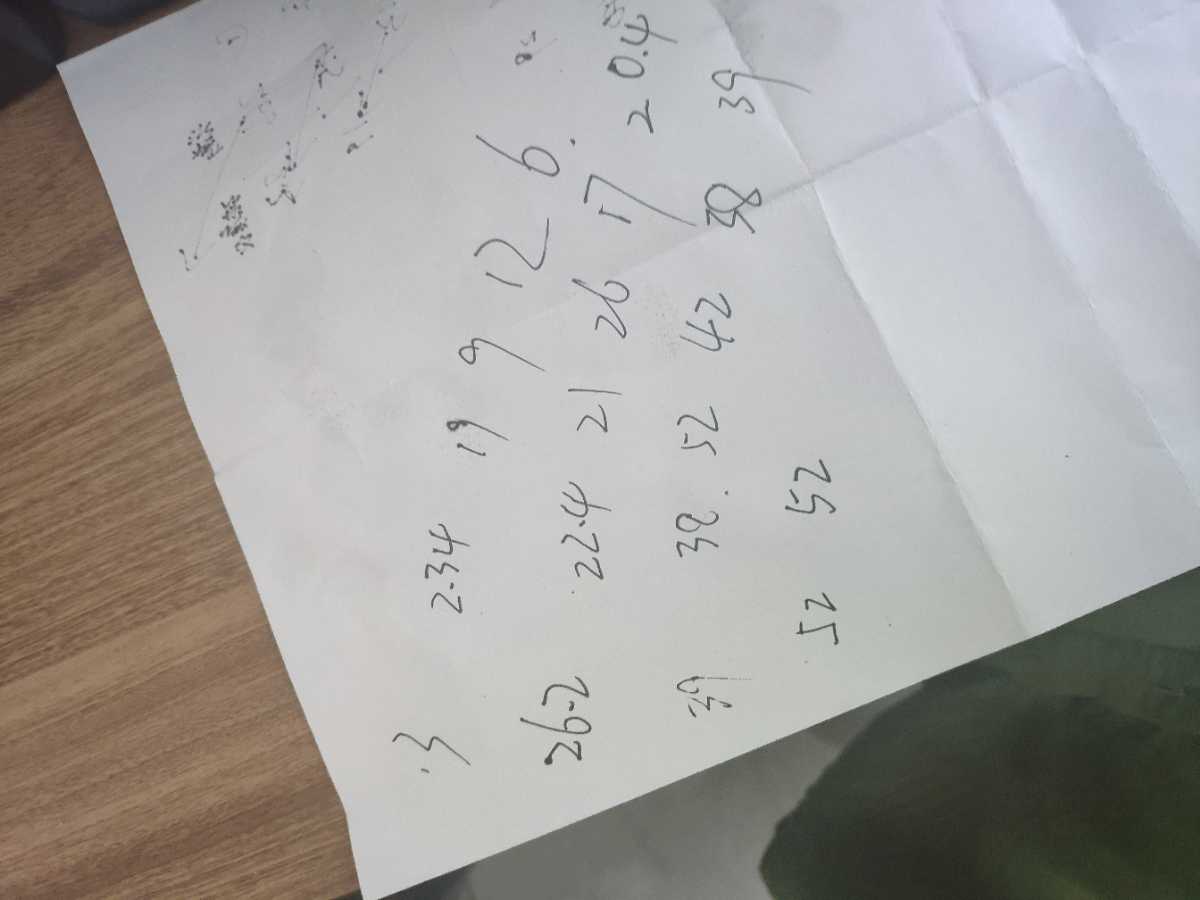 3 2.34 19 9 12 6.
26.2 22.4 21 26 17 20.4
39 38. 52 42 38 39
52 52